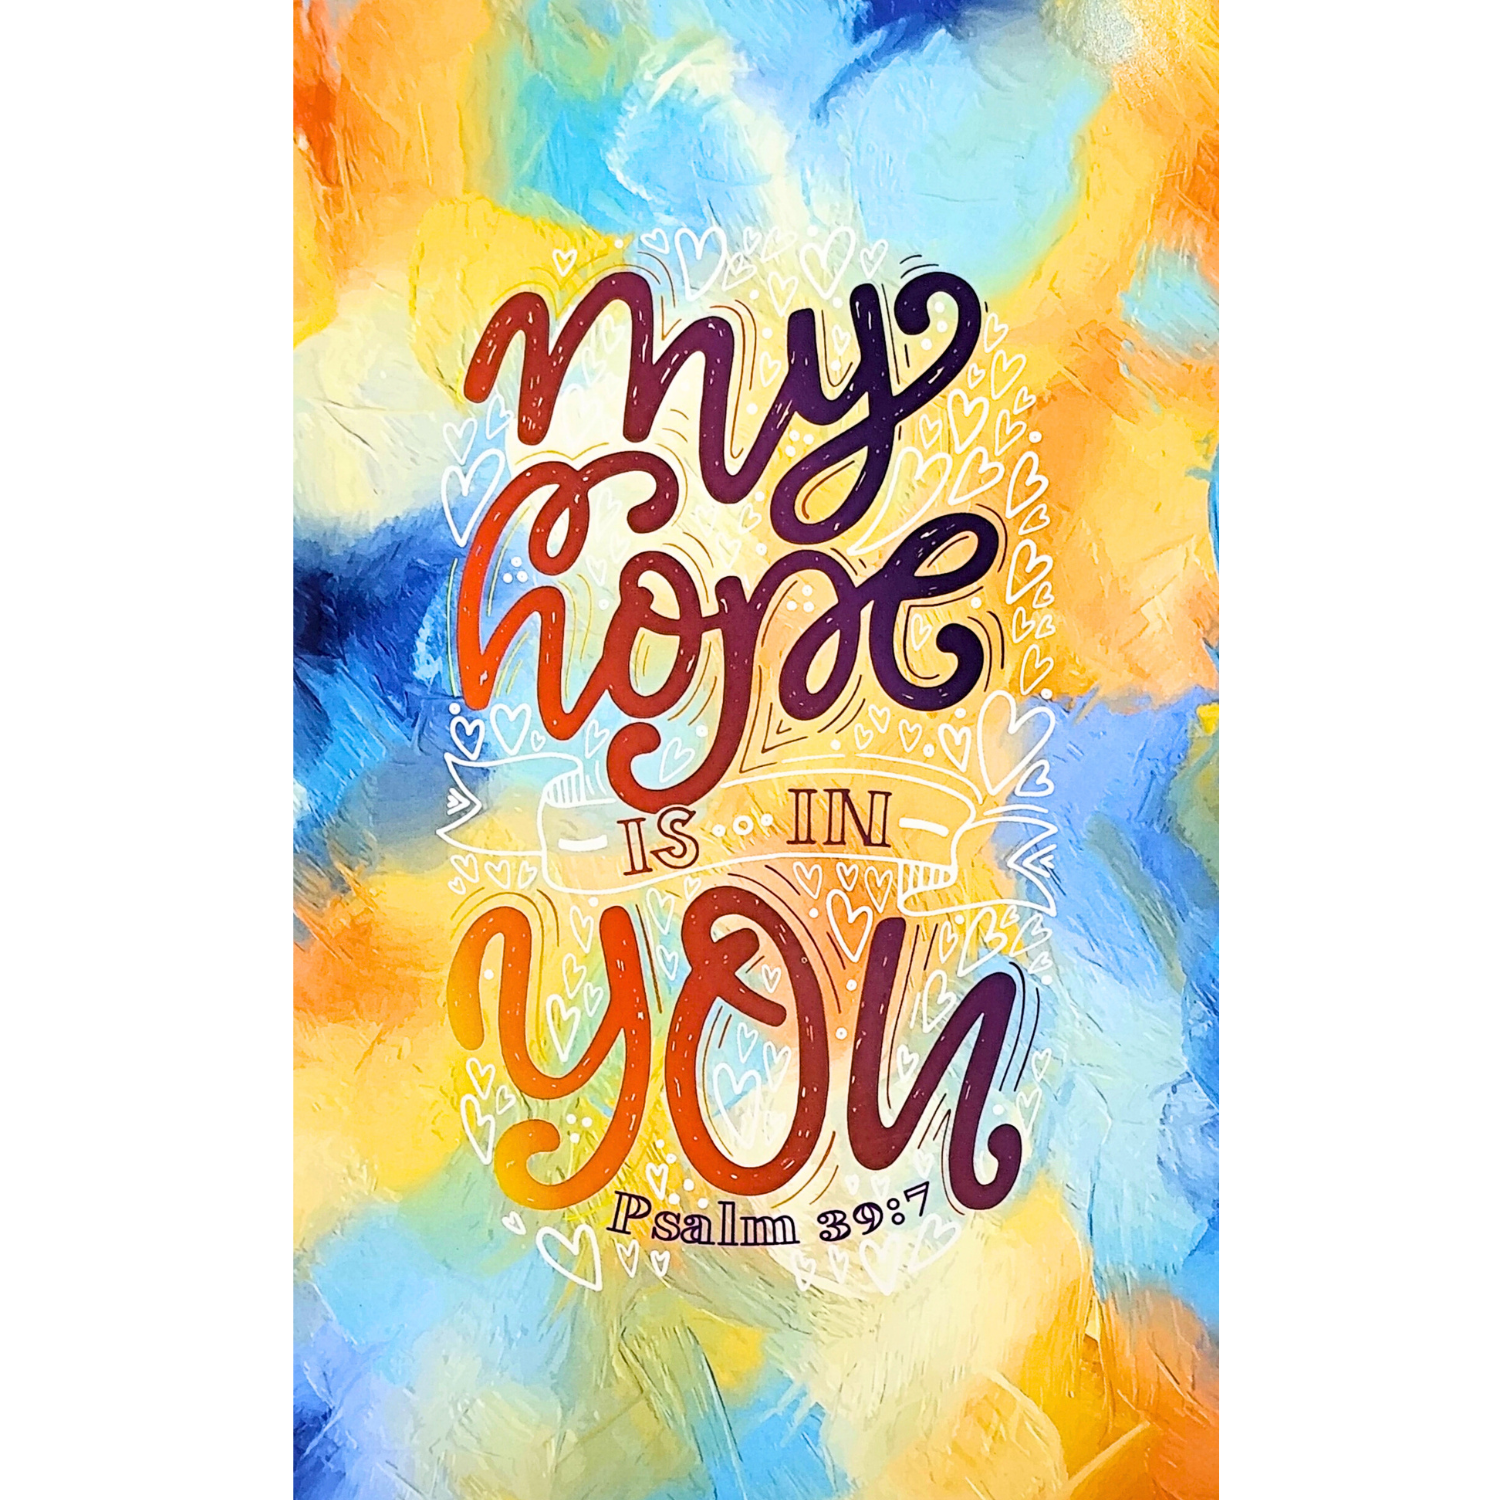 my
hope
IS IN
you
Psalm 39:7